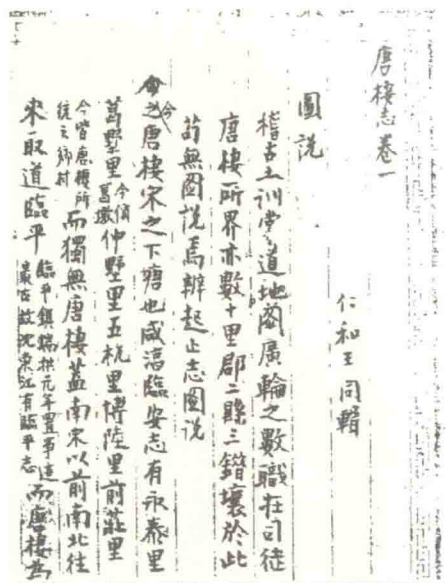 唐棲志卷一
仁和王同輯
圖説
稽古土訓掌道地圖廣輪之數職在司徒
唐棲所界亦數十里郡二縣三錯壤於此
苟無圖説焉辨起止志圖説
今之唐棲宋之下塘也咸淳臨安志有永泰里
葛墅里今偁葛墩仲墅里五杭里博陸里前莊里
今皆唐棲所統之鄉村而獨無唐棲蓋南宋以前南北往
來取道臨平臨平鎮端拱元年置事蹟最古故沈東江有臨平志而唐棲為